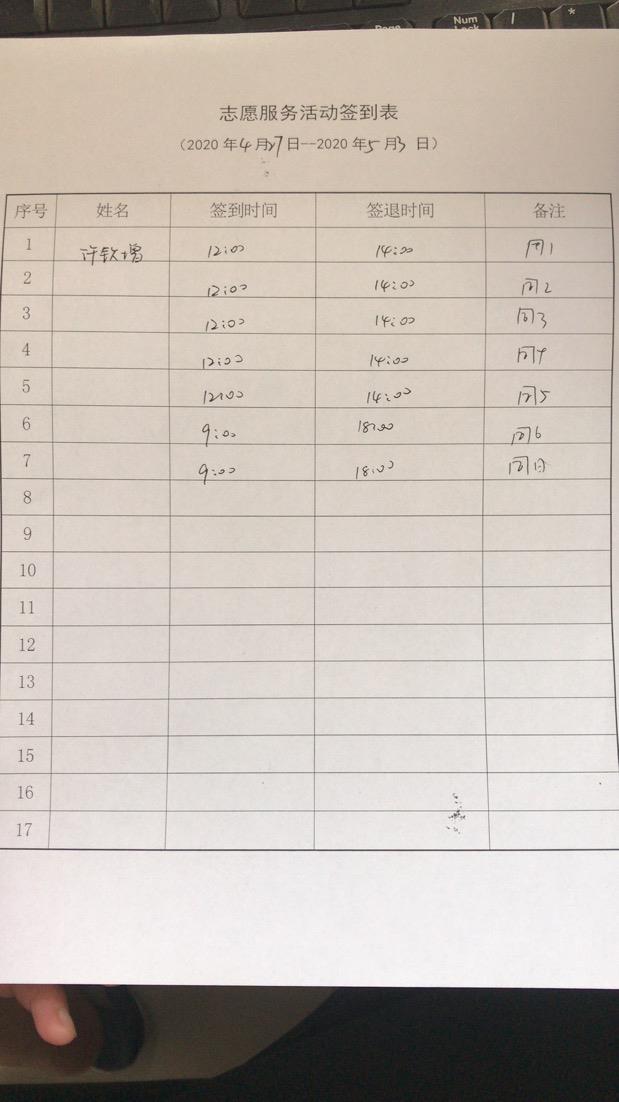 Num
Lock
*
Page
志愿服务活动签到表
（2020年4月27日--2020年5月3日）
序号 姓名 签到时间 签退时间 备注
1 许钦增 12:00 14:00 周1
2 12:00 14:00 周2
3 12:00 14:00 周3
4 12:00 14:00 周4
5 12:00 14:00 周5
6 9:00 18:00 周6
7 9:00 18:00 周日
8
9
10
11
12
13
14
15
16
17